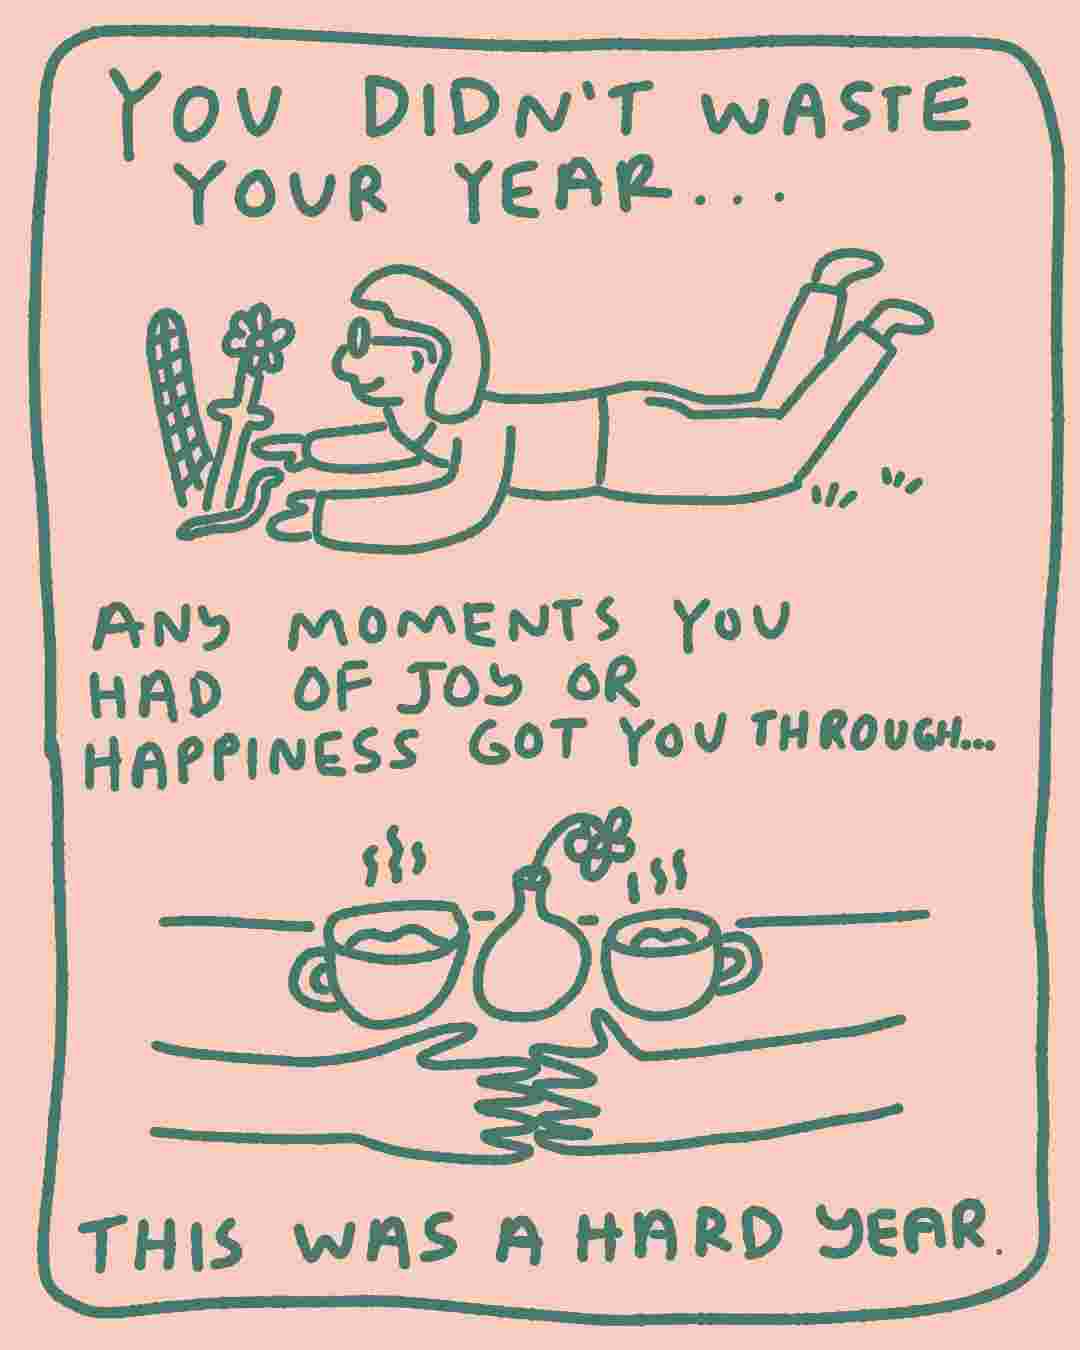 YOU DIDN'T WASTE
YOUR YEAR...
ANY MOMENTS YOU
HAD OF JOY OR
HAPPINESS GOT YOU THROUGH...
THIS WAS A HARD YEAR.